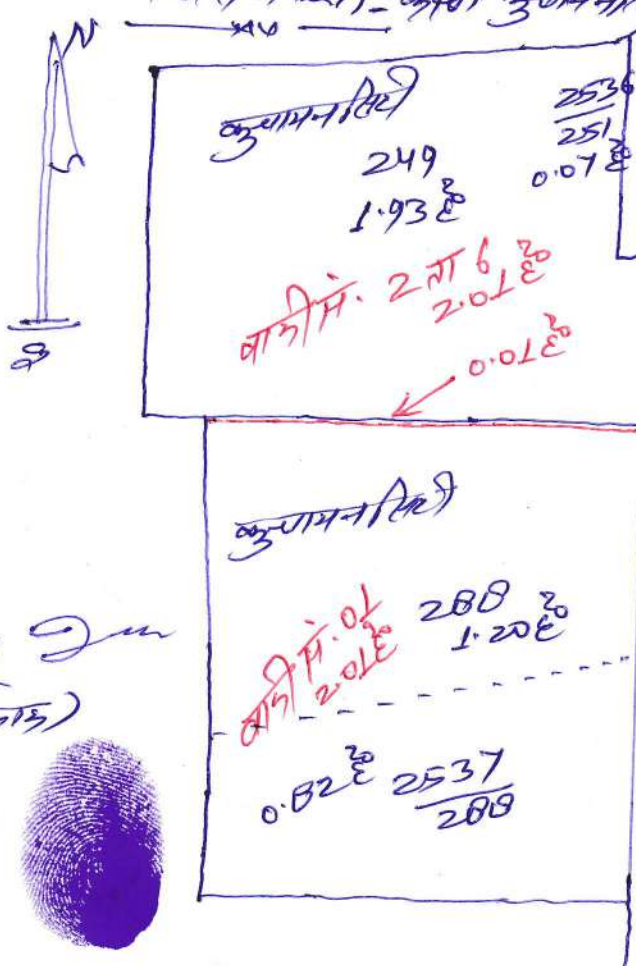 N
कुचामन सिटी
249
1.93 है०
2536
251
0.07 है०
वादी सं. 2 ता 6
2.01 है०
0.01 है०
S
कुचामन सिटी
वादी सं. 01
2.01 है०
288
1.20 है०
0.82 है०
2537
288